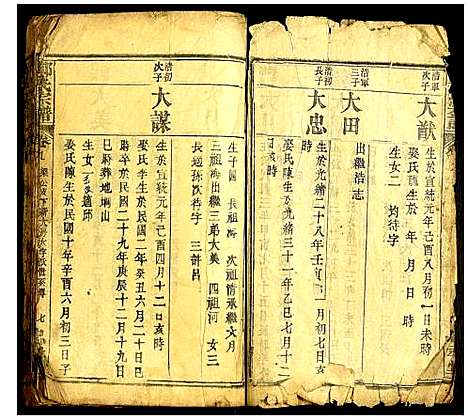 清初
次子
大猷
生於宣統元年己酉八月初一日未時
娶氏魏生於 年 月 日 時
生女二 均待字
清軍
三子
大田
出繼浩志
清初
長子
大忠
生於光緒二十八年壬寅 月初一日亥時
娶氏陳生於光緒三十一年乙巳七月十二
日亥時
生子四 長祖海 次祖清承繼大
三祖 出繼三弟大美 四祖河 女三
長適孫次待字 三許呂
清初
次子
大謀
生於宣統元年己酉四月十二日亥時
娶氏李生於民國二年癸丑六月二十日巳
時卒於民國二十九年庚辰十二月十九日
巳時葬地
生女一 適邱
娶氏陳生於民國十年辛酉六月初三日子
宗譜
卷
七